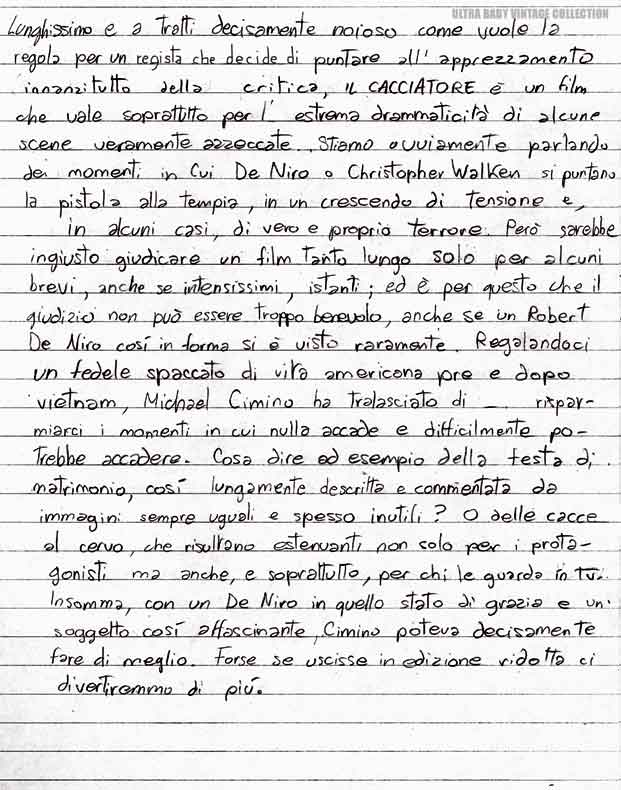 ULTRA BABY VINTAGE COLLECTION
Lunghissimo e a tratti decisamente noioso come vuole la
regola per un regista che decide di puntare all'apprezzamento
innanzitutto della critica, IL CACCIATORE è un film
che vale soprattitto per l'estrema drammaticità di alcune
scene veramente azzeccate. Stiamo ovviamente parlando
dei momenti in cui De Niro o Christopher Walken si puntano
la pistola alla tempia, in un crescendo di tensione e,
in alcuni casi, di vero e proprio terrore. Però sarebbe
ingiusto giudicare un film tanto lungo solo per alcuni
brevi, anche se intensissimi, istanti; ed è per questo che il
giudizio non può essere troppo benevolo, anche se un Robert
De Niro così in forma si è visto raramente. Regalandoci
un fedele spaccato di vita americana pre e dopo
vietnam, Michael Cimino ha tralasciato di rispar-
miarci i momenti in cui nulla accade e difficilmente po-
trebbe accadere. Cosa dire ad esempio della festa di
matrimonio, così lungamente descritta e commentata da
immagini sempre uguali e spesso inutili? O delle cacce
al cervo, che risultano estenuanti non solo per i prota-
gonisti ma anche, e soprattutto, per chi le guarda in tv.
Insomma, con un De Niro in quello stato di grazia e un
soggetto così affascinante, Cimino poteva decisamente
fare di meglio. Forse se uscisse in edizione ridotta ci
divertiremmo di più.